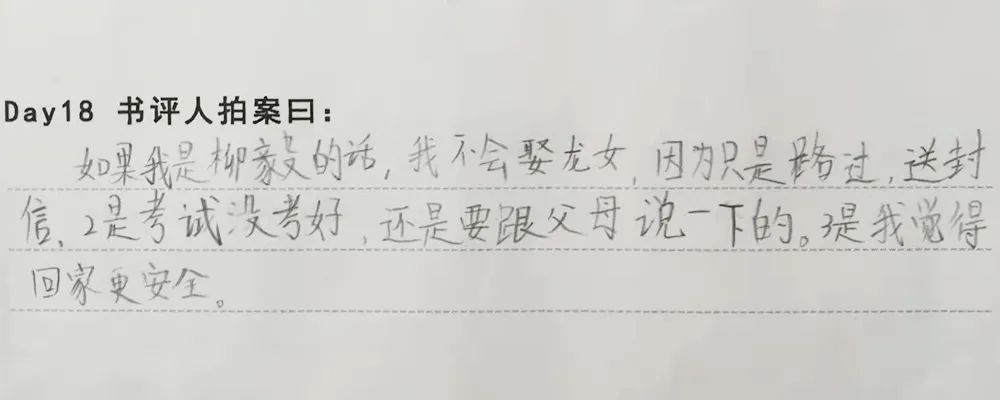 Day18 书评人拍案曰：
如果我是柳毅的话，我不会娶龙女，因为只是路过，送封
信、2是考试没考好，还是要跟父母说一下的。3是我觉得
回家更安全。